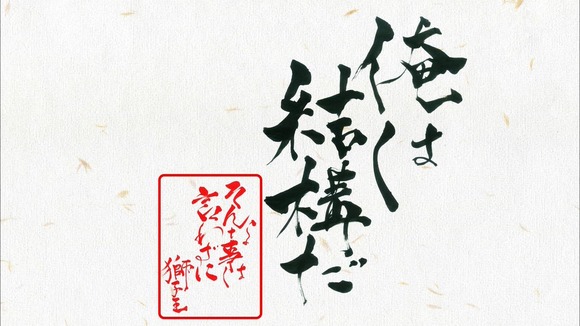 俺は
結構だ
そんな事は
言わずに
獅子王